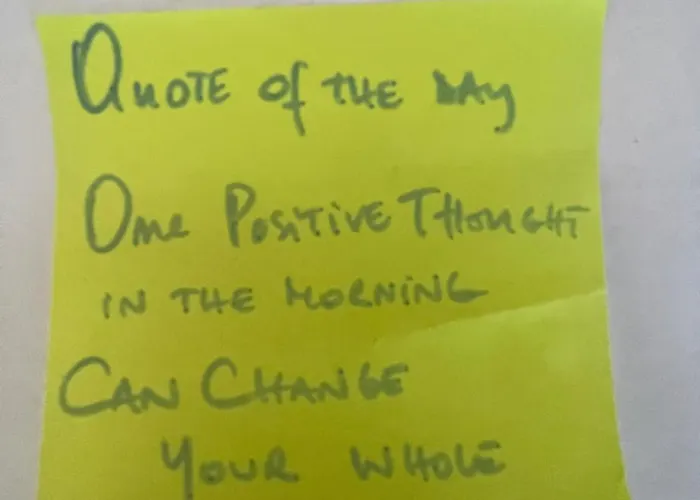 Quote of the Day
One Positive Thought
in the morning
Can Change
Your whole